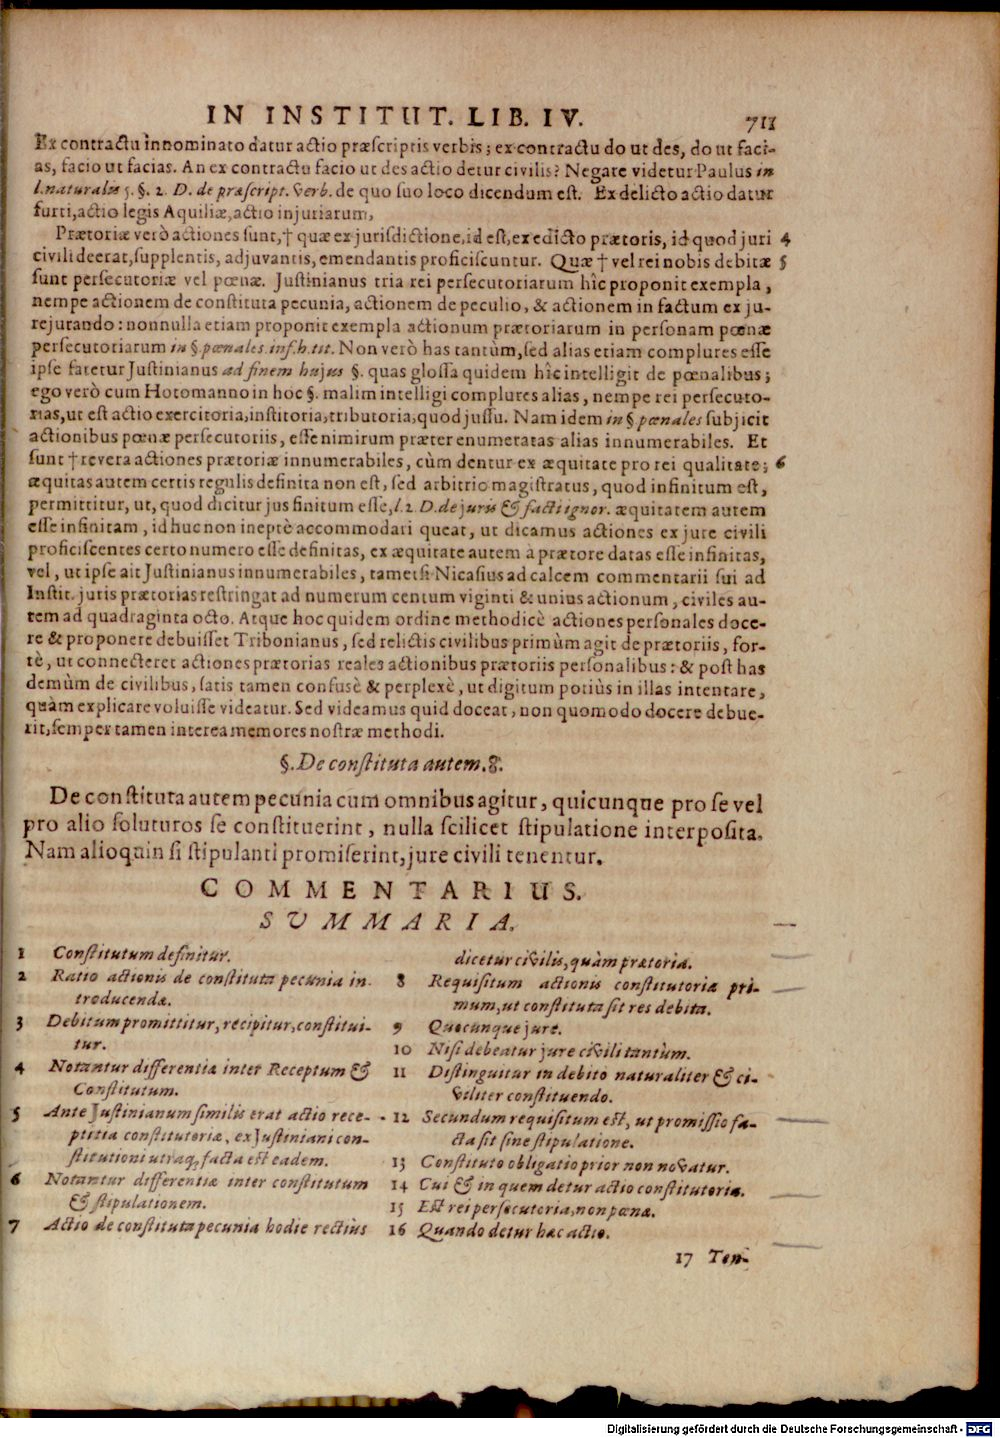 IN INSTITUT. LIB. IV. 711
Ex contractu innominato datur actio præscriptis verbis; ex contractu do ut des, do ut faci-
as, facio ut facias. An ex contractu facio ut des actio detur civilis? Negare videtur Paulus in
l. naturalis 5. §. 2. D. de præscript. verb. de quo suo loco dicendum est. Ex delicto actio datur
furti, actio legis Aquiliæ, actio injuriarum,
Prætoriæ verò actiones sunt, † quæ ex jurisdictione, id est, ex edicto prætoris, id quod juri 4
civili deerat, supplentis, adjuvantis, emendantis proficiscuntur. Quæ † vel rei nobis debitæ 5
sunt persecutoriæ vel pœnæ. Justinianus tria rei persecutoriarum hîc proponit exempla,
nempe actionem de constituta pecunia, actionem de peculio, & actionem in factum ex ju-
rejurando: nonnulla etiam proponit exempla actionum prætoriarum in personam pœnæ
persecutoriarum in §. pœnales. inf. h. tit. Non verò has tantùm, sed alias etiam complures esse
ipse fatetur Justinianus ad finem hujus §. quas glossa quidem hîc intelligit de pœnalibus;
ego verò cum Hotomanno in hoc §. malim intelligi complures alias, nempe rei persecuto-
rias, ut est actio exercitoria, institoria, tributoria, quod jussu. Nam idem in § pœnales subjicit
actionibus pœnæ persecutoriis, esse nimirum præter enumeratas alias innumerabiles. Et
sunt † revera actiones prætoriæ innumerabiles, cùm dentur ex æquitate pro rei qualitate; 6
æquitas autem certis regulis definita non est, sed arbitrio magistratus, quod infinitum est,
permittitur, ut, quod dicitur jus finitum esse, l. 2. D. de juris & facti ignor. æquitatem autem
esse infinitam, id huc non ineptè accommodari queat, ut dicamus actiones ex jure civili
proficiscentes certo numero esse definitas, ex æquitate autem à prætore datas esse infinitas,
vel, ut ipse ait Justinianus innumerabiles, tametsi Nicasius ad calcem commentarii sui ad
Instit. juris prætorias restringat ad numerum centum viginti & unius actionum, civiles au-
tem ad quadraginta octo. Atque hoc quidem ordine methodicè actiones personales doce-
re & proponere debuisset Tribonianus, sed relictis civilibus primùm agit de prætoriis, for-
tè, ut connecteret actiones prætorias reales actionibus prætoriis personalibus: & post has
demùm de civilibus, satis tamen confusè & perplexè, ut digitum potiùs in illas intentare,
quàm explicare voluisse videatur. Sed videamus quid doceat, non quomodo docere debue-
rit, semper tamen interea memores nostræ methodi.
§. De constituta autem. 8.
De constituta autem pecunia cum omnibus agitur, quicunque pro se vel
pro alio soluturos se constituerint, nulla scilicet stipulatione interposita.
Nam alioquin si stipulanti promiserint, jure civili tenentur.
COMMENTARIUS.
SUMMARIA.
1 Constitutum definitur.
2 Ratio actionis de constituta pecunia in-
troducendæ.
3 Debitum promittitur, recipitur, constitui-
tur.
4 Notantur differentiæ inter Receptum &
Constitutum.
5 Ante Justinianum similis erat actio rece-
ptitia constitutoriæ, ex Justiniani con-
stitutioni utraq; facta est eadem.
6 Notantur differentiæ inter constitutum
& stipulationem.
7 Actio de constituta pecunia hodie rectiùs
dicetur civilis, quàm prætoria.
8 Requisitum actionis constitutoriæ pri-
mum, ut constituta sit res debita.
9 Quocunque jure.
10 Nisi debeatur jure civili tantùm.
11 Distinguitur in debito naturaliter & ci-
viliter constituendo.
12 Secundum requisitum est, ut promissio fa-
cta sit sine stipulatione.
13 Constituto obligatio prior non novatur.
14 Cui & in quem detur actio constitutoria.
15 Est rei persecutoria, non pœnæ.
16 Quando detur hæc actio.
17 Ten-
Digitalisierung gefördert durch die Deutsche Forschungsgemeinschaft - DFG